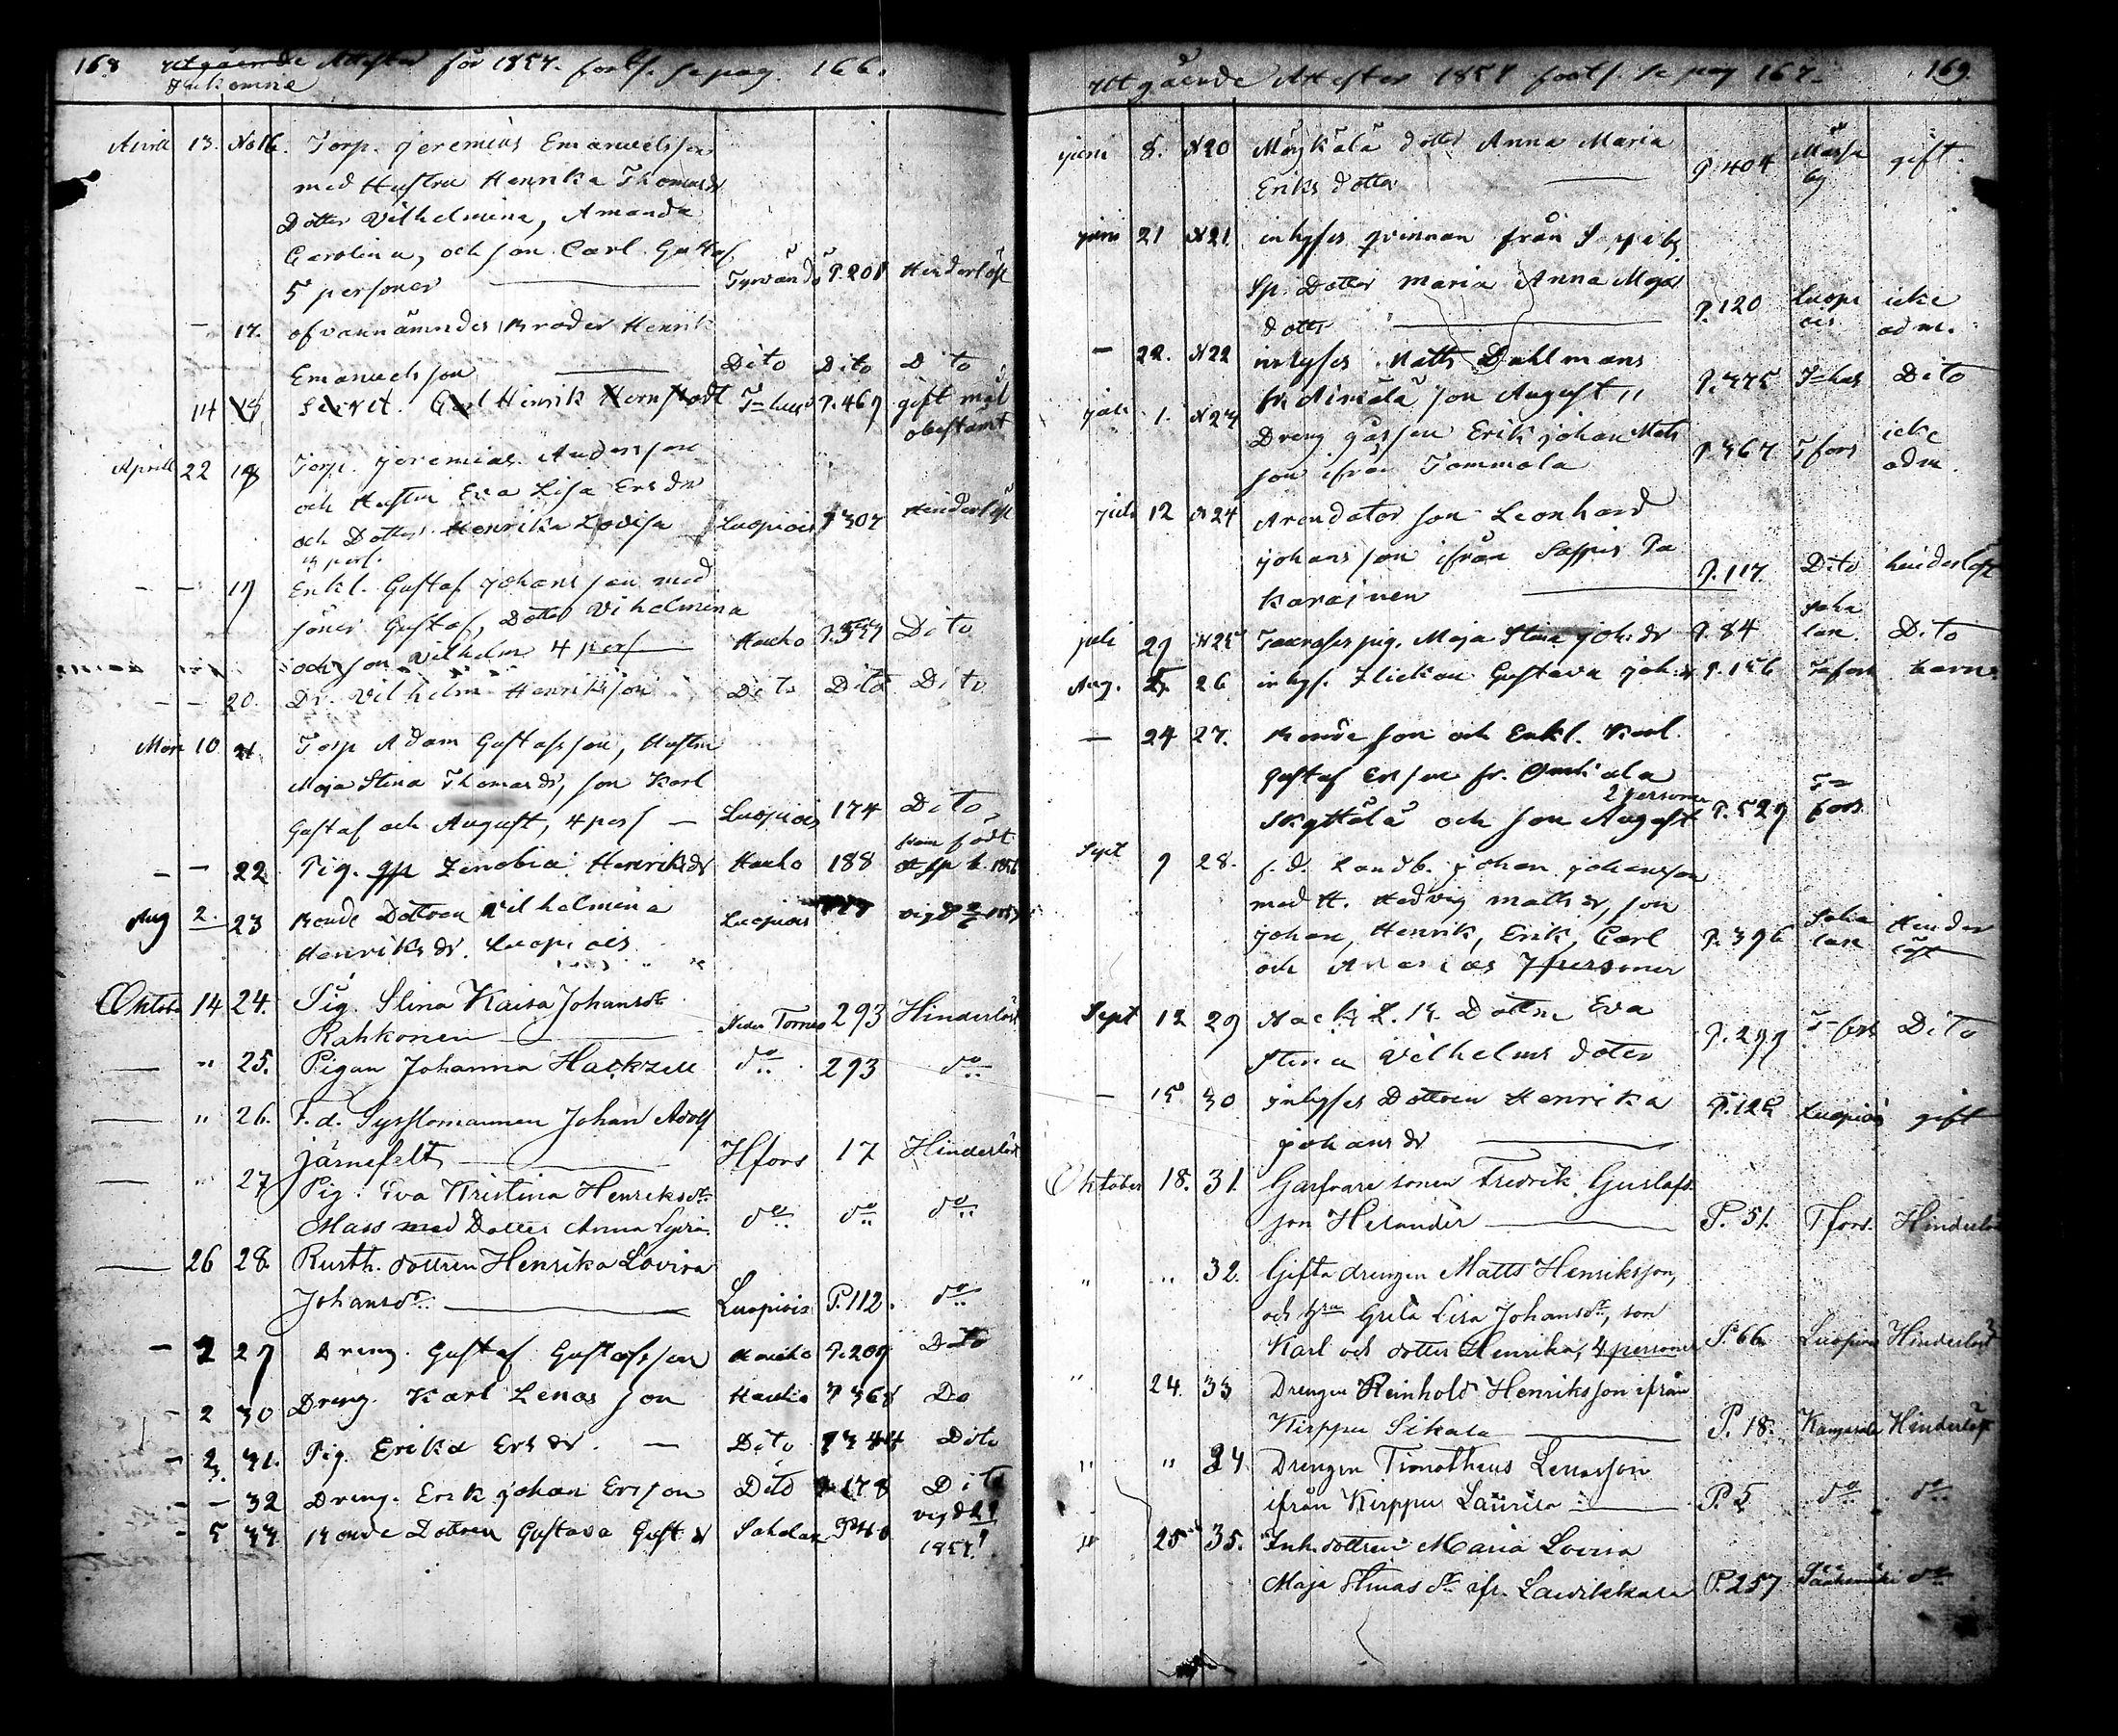 168 Utgående Attester för 1857. forts. se pag. 166.
Inkomne
Aprill 13. No 16. Torp. Jeremias Emanuelsson
med Hustru Henrika Thomasdr
Dotter Vilhelmina, Amanda
Carolina, och son Carl Gustaf
5 personer Tyrvändö P. 208 Hinderlöst
— 17. ofvannämndes Broder Henrik
Emanuelsson Dito Dito Dito
14 Henrik P. 469 gift mål
obestämt
Aprill 22 18 Torp. Jeremias Andersson
och Hustru Eva Lisa Ersdr
och Dotter Henrika Lovisa Luopiois P 307 Hinderlöst
3 pers.
— — 19 Enkl. Gustaf Johansson med
söner Gustaf, Dotter Vilhelmina
och son Vilhelm 4 pers Hauho Dito
— — 20. Dr. Vilhelm Henriksson Dito Dito Dito
10 21 Torp Adam Gustafsson, Hustru
Maja Stina Thomasdr, son Karl
Gustaf och August, 4 pers — Luopiois 174 Dito
— — 22 Pig. Zenobia Henriksdr Hauho 188
Aug 2. 23 Bonde Dottren Vilhelmina Luopiois
Henriksdr. Luopiois
Oktober 14 24. Pig. Stina Kaisa Johansdr
Rahkonen Neder Torneo 293 Hinderlöst
— " 25. Pigan Johanna Hackzell do 293 do
— " 26. F.d. Sysslomannen Johan Adolf
Järnefelt Hfors 17 Hinderlöst
— " 27 Pig. Eva Kristina Henriksdr
Mass med Dotter Anna Lydia do do do
— 26 28. Rusth. dottren Henrika Lovisa
Johansdr Luopiois P. 112. do
— 2 29 Dreng. Gustaf Gustafsson Hauho P. 209 Dito
— 2 30 Dreng. Karl Lenasson Hauho P 368 Do
— 2 31. Pig. Erika Ersdr. — Dito P 344 Dito
— — 32 Dreng. Erik Johan Ersson Dito P. 178 Dito
— 5 33. Bonde Dottren Gustava Gust.dr Sahalax P 40 vigd
1857.
Utgående Attester 1857 forts. se pag 167. 169
juni 8. N 20 Dotter Anna Maria
Eriks dotter P 404 by gift.
juni 21 N 21 inhyses qvinnan från
Sp. Dotter Maria Anna Majas
dotter P. 120 Luopi
ois icke
adm.
— 22. N 22 inhyses Matts Dahlmans
son August P. 375 Dito
juli 1. N 23 Dreng gossen Erik Johan Mats
son ifrån Tommola P. 367 Tfors icke
adm.
juli 12 N 24 Arendator son Leonhard
Johansson ifrån Sappis Pa
karainen P. 117. Dito hinderlöst
juli 29 N 25 pig. Maja Stina Joh.dr P. 84 Saha
lax. Dito
Aug. 5. 26 inhys. Flickan Gustava Joh.dr P. 156 Tafors barn
— 24 27. Bonde son och Enkl. Karl
Gustaf Ersson fr. Onkiala
2 personer
Skyttälä och son August P. 529 T=
fors
Sept 9 28. f.d. Landb. Johan Johansson
med H. Hedvig Mattsdr, son
Johan, Henrik, Erik, Carl P. 396 Saha
lax Hinder
löst
och Ananias 7 personer
Sept 12 29 Dottren Eva
Stina Vilhelms doter P. 299 T-fors Dito
— 15 30 inhyses Dottren Henrika
Johansdr Luopiois gift
Oktober 18. 31. Garfvare sonen Fredrik Gustafs
son Helander P. 51. Tfors. Hinderlöst
" " 32. Gifta drengen Matts Henriksson,
och hu Greta Lisa Johansdr, son
Karl och dotter Henrika, 4 personer P. 66. Luopiois Hinderlöst
" 24. 33 Drengen Reinhold Henriksson ifrån
Kirppu Sikala P. 18. Kangasala Hinderlöst
" " 34 Drengen Timotheus Lenasson
ifrån Kirppu Laurila P. 5 do do
" 25 35. Inh. dottren Maria Lovisa
Maja Stinas dr ifr. P. 257 Sääksmäki do